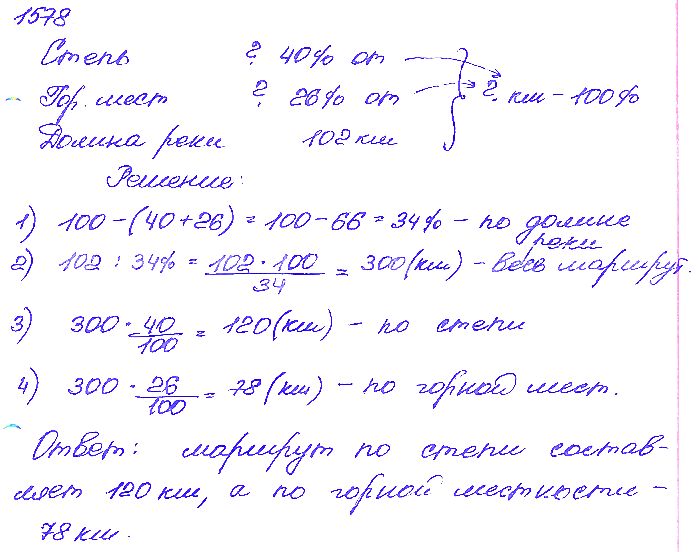 1578
Степь ? 40% от
Гор. мест ? 26% от ? км – 100%
Долина реки 102 км
Решение:
1) 100 – (40 + 26) = 100 – 66 = 34% – по долине реки
2) 102 : 34% = 102 · 100 / 34 = 300 (км) – весь маршрут.
3) 300 · 40 / 100 = 120 (км) – по степи
4) 300 · 26 / 100 = 78 (км) – по горной мест.
Ответ: маршрут по степи состав-
ляет 120 км, а по горной местности –
78 км.